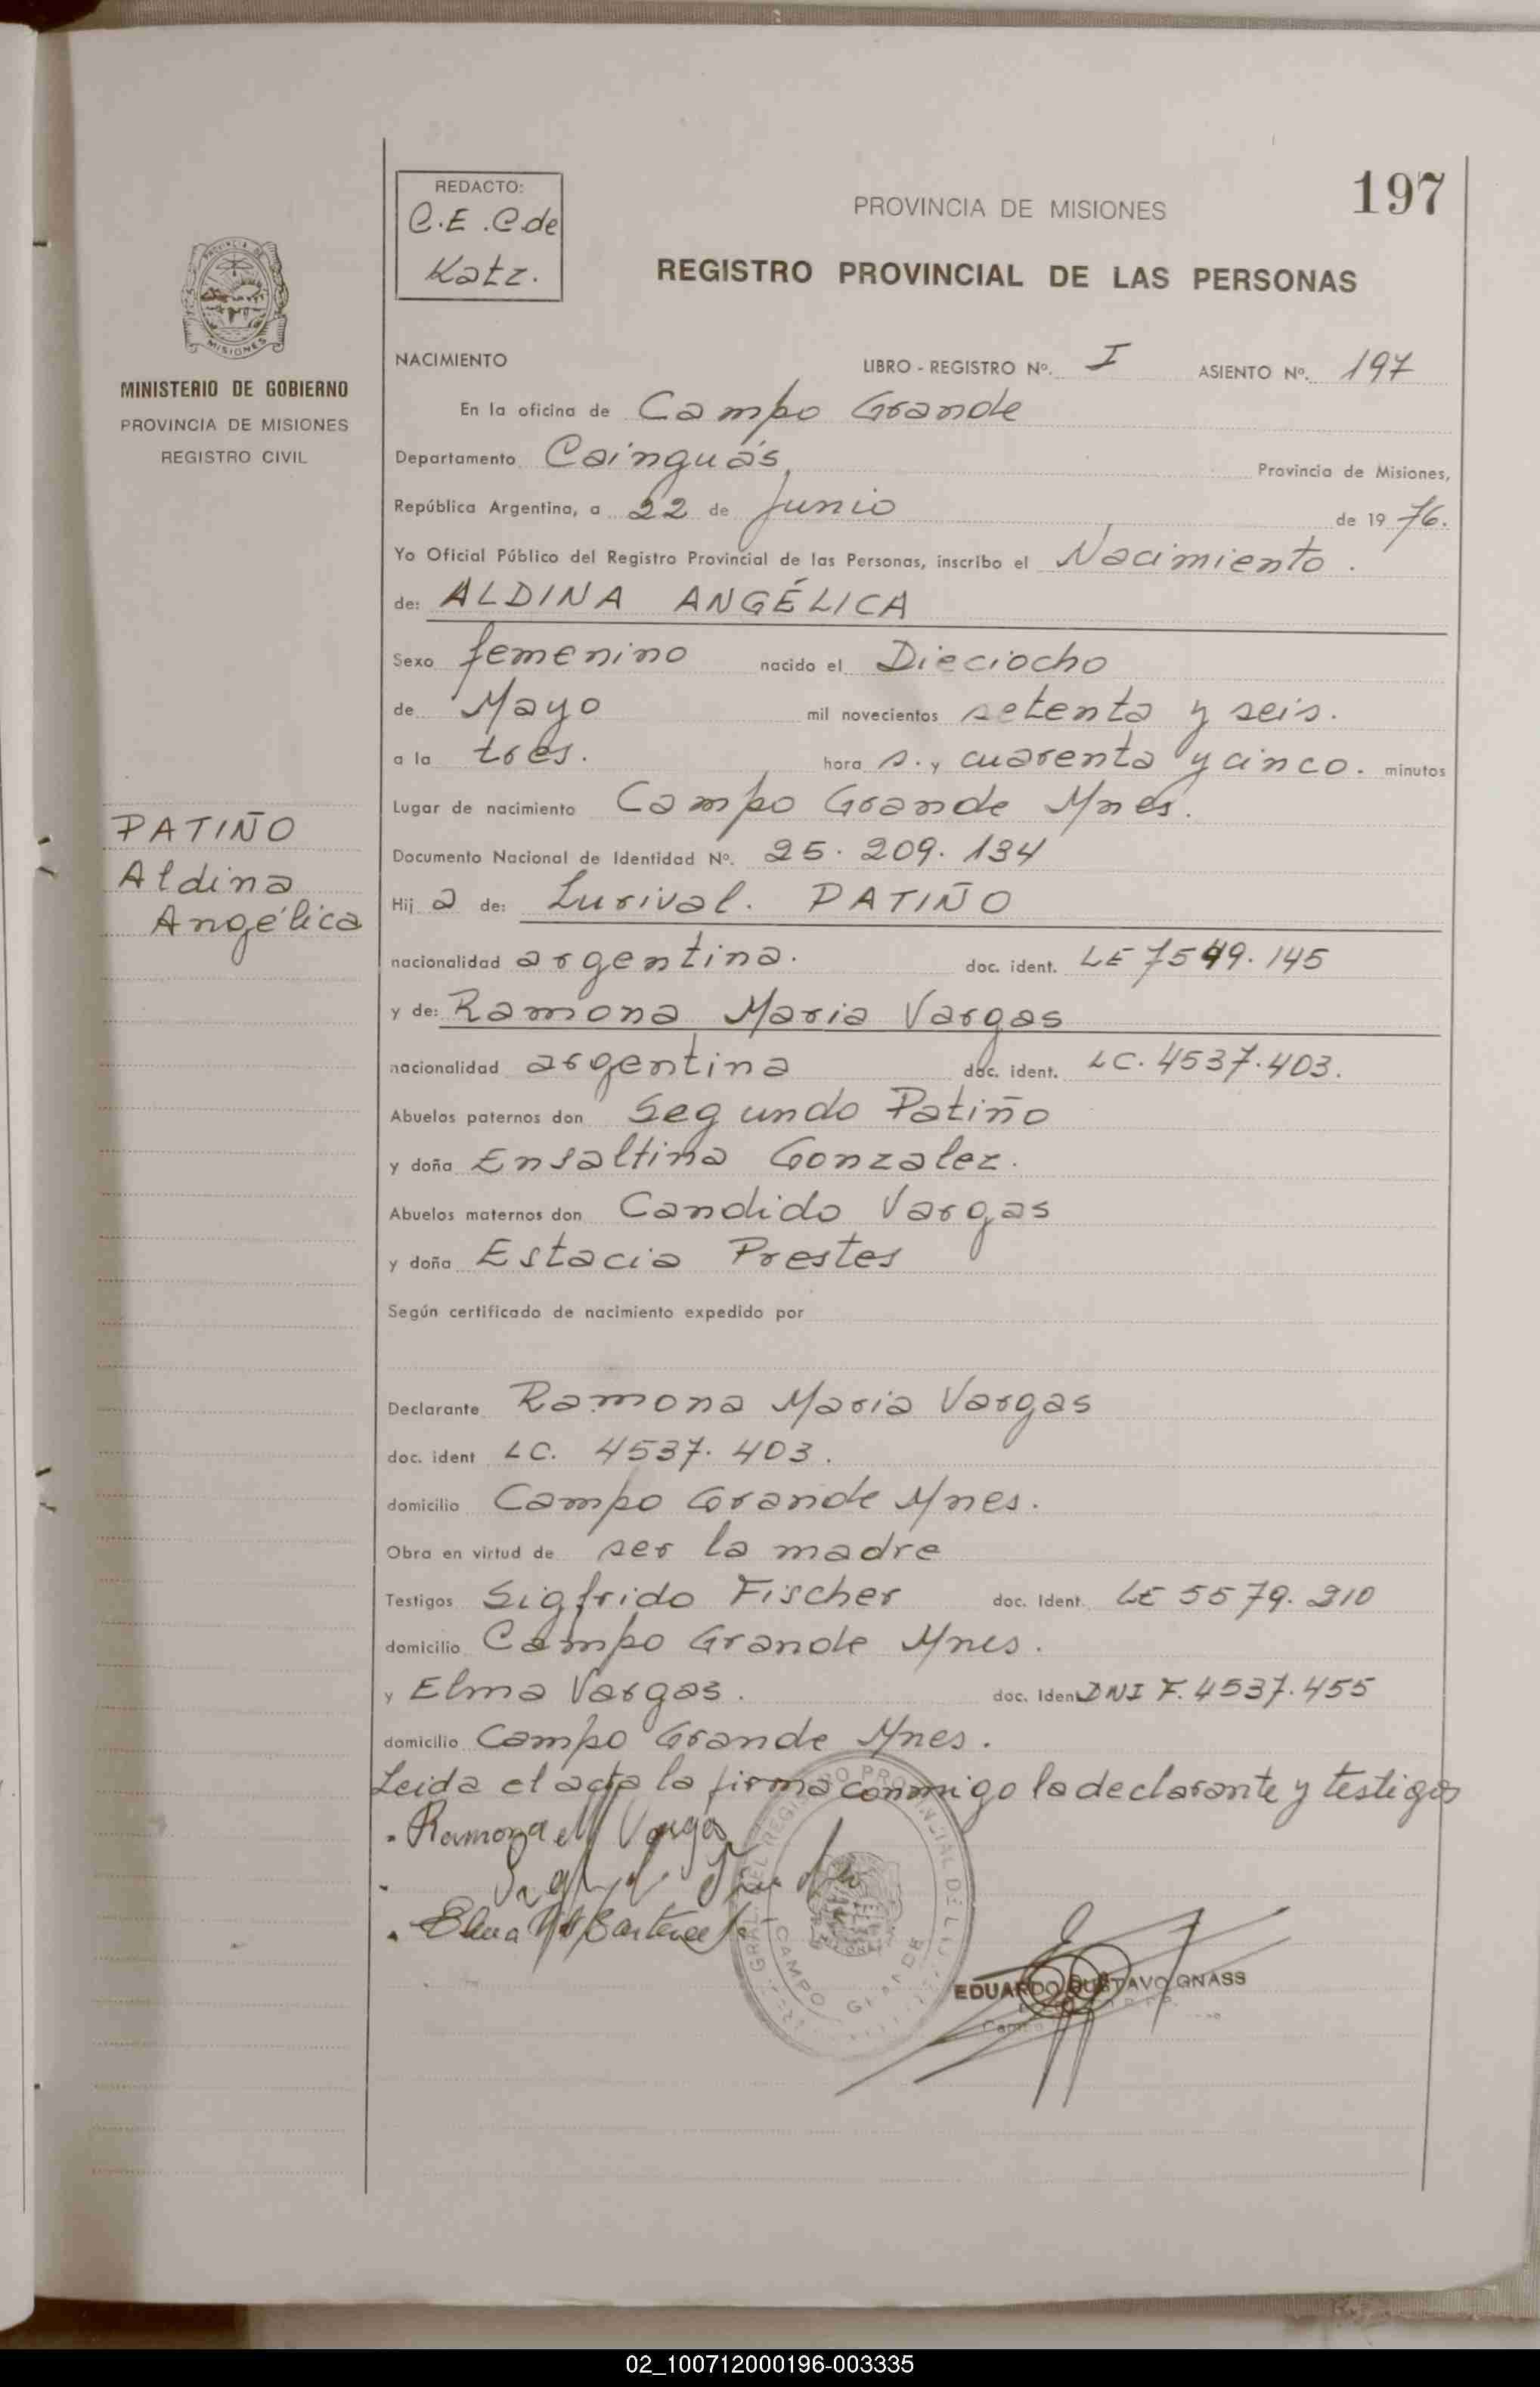 197
REDACTO:
C.E.C.de
Katz.
PROVINCIA DE MISIONES
REGISTRO PROVINCIAL DE LAS PERSONAS
MISIONES
MINISTERIO DE GOBIERNO
PROVINCIA DE MISIONES
REGISTRO CIVIL
NACIMIENTO LIBRO - REGISTRO Nº. I ASIENTO Nº. 197
En la oficina de Campo Grande
Departamento Cainguás, Provincia de Misiones,
República Argentina, a 22 de Junio de 1976.
Yo Oficial Público del Registro Provincial de las Personas, inscribo el Nacimiento.
de: ALDINA ANGÉLICA
Sexo femenino nacido el Dieciocho
de Mayo mil novecientos setenta y seis.
a la tres. hora s. y cuarenta y cinco. minutos
Lugar de nacimiento Campo Grande Mnes.
PATIÑO
Aldina
Angélica
Documento Nacional de Identidad Nº. 25.209.134
Hij a de: Lurival. PATIÑO
nacionalidad argentina. doc. ident. LE 7549.145
y de: Ramona Maria Vargas
nacionalidad argentina doc. ident. LC. 4537.403.
Abuelos paternos don Segundo Patiño
y doña Ensaltina Gonzalez.
Abuelos maternos don Candido Vargas
y doña Estacia Prestes
Según certificado de nacimiento expedido por
Declarante Ramona Maria Vargas
doc. ident LC. 4537.403.
domicilio Campo Grande Mnes.
Obra en virtud de ser la madre
Testigos Sigfrido Fischer doc. Ident. LE 5579.210
domicilio Campo Grande Mnes.
y Elma Vargas. doc. Ident DNI F. 4537.455
domicilio Campo Grande Mnes.
Leida el acta la firma conmigo la declarante y testigos
Ramona M Vargas
Elma
CAMPO GRANDE
EDUARDO GUSTAVO GNASS
02_100712000196-003335